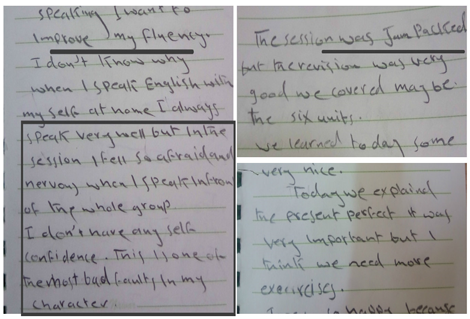 speaking I want to
Improve my fluency.
I don't know why
when I speak English with
my self at home I always
speak very well but In the
session I fell so afraid and
nervous when I speak Infron
of the whole group
I don't have any self
confidence. This Is one of
the most bad faults In my
character.
The session was Jam Packed
but the revision was very
good we covered may be.
the six units.
we learned today some
very nice.
Today we explained
the present perfect it was
very Important but I
think we need more
exercirses.
happy because